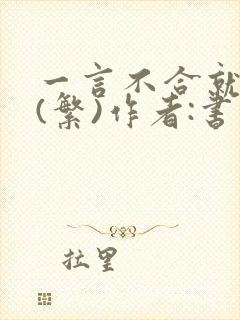 一言不合就
(繁)作者:書
拉里